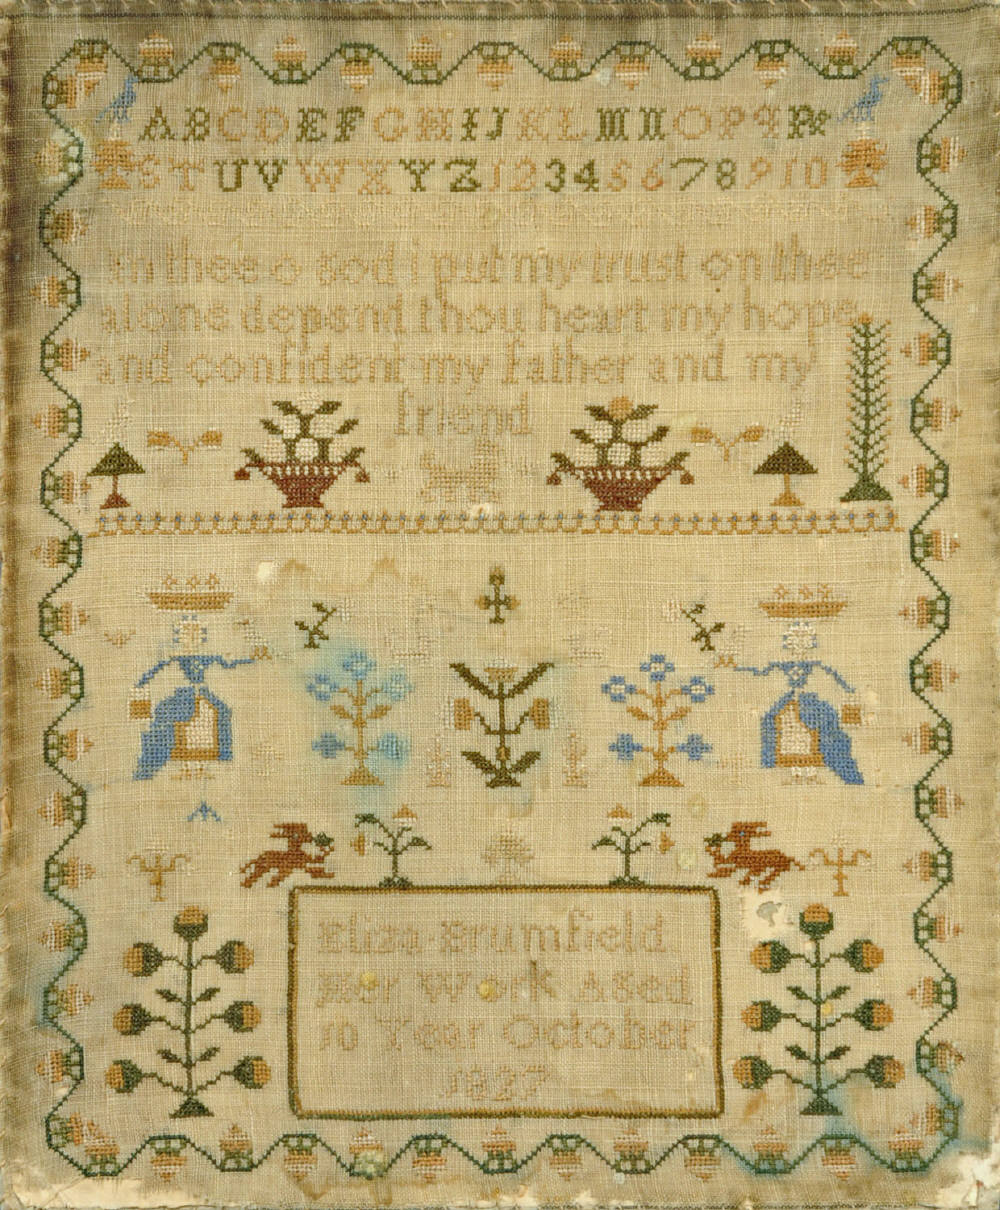 ABCDEFGHIJKLMNOPQR
STUVWXYZ12345678910
in thee o god i put my trust on thee
alone depend thou heart my hope
and confident my father and my
friend
Eliza Brumfield
Her Work Aged
10 Year October
1827